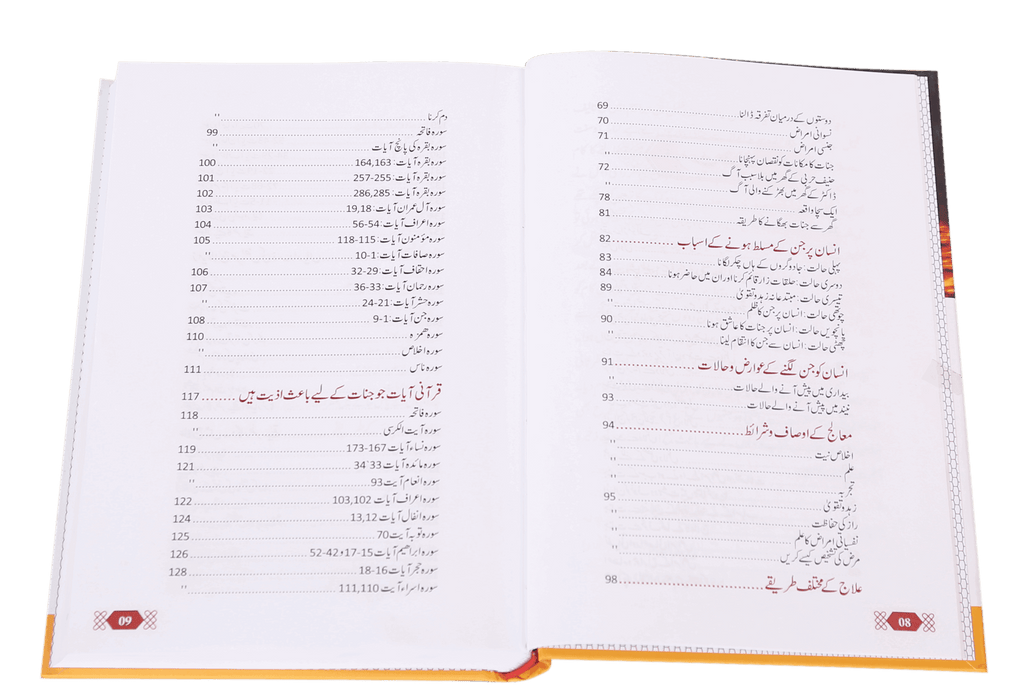 دوستوں کے درمیان تفرقہ ڈالنا ........ 69
نسوانی امراض ........ 70
جنسی امراض ........ 71
جنات کا مکانات کو نقصان پہنچانا ........ "
حنیف حربی کے گھر میں بلا سبب آگ ........ 72
ڈاکٹر کے گھر میں بھڑکنے والی آگ ........ "
ایک سچا واقعہ ........ 78
گھر سے جنات بھگانے کا طریقہ ........ 81
انسان پر جن کے مسلط ہونے کے اسباب ........ 82
پہلی حالت: جادوگروں کے ہاں چکر لگانا ........ 83
دوسری حالت: حلقات زار قائم کرنا اور ان میں حاضر ہونا ........ 84
تیسری حالت: مبتدعانہ زہد و تقویٰ ........ 89
چوتھی حالت: انسان پر جن کا ظلم ........ "
پانچویں حالت: انسان پر جنات کا عاشق ہونا ........ 90
چھٹی حالت: انسان سے جن کا انتقام لینا ........ "
انسان کو جن لگنے کے عوارض و حالات ........ 91
بیداری میں پیش آنے والے حالات ........ "
نیند میں پیش آنے والے حالات ........ 93
معالج کے اوصاف و شرائط ........ 94
اخلاص نیت ........ "
علم ........ "
تجربہ ........ "
زہد و تقویٰ ........ 95
راز کی حفاظت ........ "
نفسیاتی امراض کا علم ........ "
مرض کی تشخیص کیسے کریں ........ "
علاج کے مختلف طریقے ........ 98
08
دم کرنا ........ "
سورہ فاتحہ ........ 99
سورہ بقرہ کی پانچ آیات ........ "
سورہ بقرہ آیات: 164,163 ........ 100
سورہ بقرہ آیات: 255-257 ........ 101
سورہ بقرہ آیات: 286,285 ........ 102
سورہ آل عمران آیات: 19,18 ........ 103
سورہ اعراف آیات: 54-56 ........ 104
سورہ مؤمنون آیات: 115-118 ........ 105
سورہ صافات آیات: 1-10 ........ "
سورہ احقاف آیات: 29-32 ........ 106
سورہ رحمان آیات: 33-36 ........ 107
سورہ حشر آیات: 21-24 ........ "
سورہ جن آیات: 1-9 ........ 108
سورہ ھمزہ ........ 110
سورہ اخلاص ........ "
سورہ ناس ........ 111
قرآنی آیات جو جنات کے لیے باعث اذیت ہیں ........ 117
سورہ فاتحہ ........ 118
سورہ آیت الکرسی ........ "
سورہ نساء آیات 167-173 ........ 119
سورہ مائدہ آیات 33`34 ........ 121
سورہ انعام آیت 93 ........ "
سورہ اعراف آیات 103,102 ........ 122
سورہ انفال آیات 13,12 ........ 124
سورہ توبہ آیت 70 ........ 125
سورہ ابراھیم آیات 15-17، 42-52 ........ 126
سورہ حجر آیات 16-18 ........ 128
سورہ اسراء آیت 111,110 ........ "
09